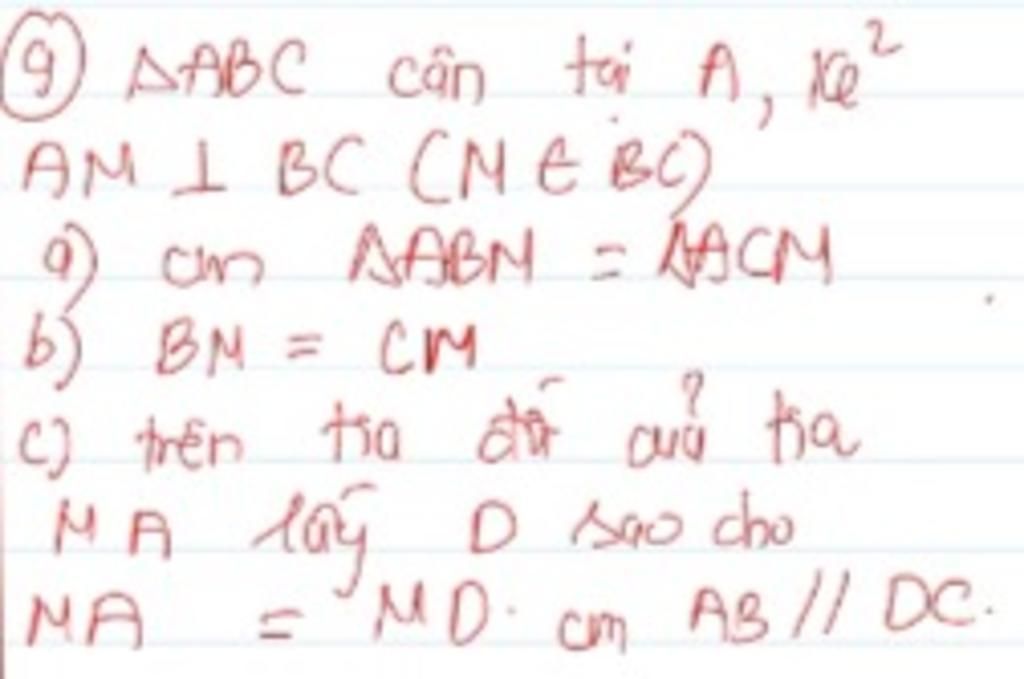 9 ΔABC cân tại A, Kẻ
AM ⊥ BC (M ∈ BC)
a) cm ΔABM = ΔACM
b) BM = CM
c) trên tia đối của tia
MA lấy D sao cho
MA = MD. cm AB // DC.